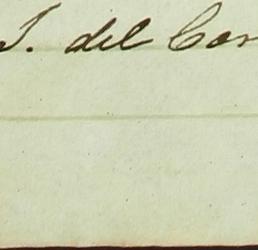 J. del Cor